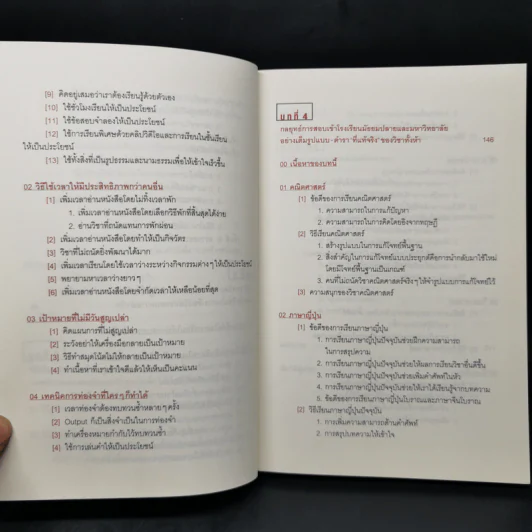 [9] คิดอยู่เสมอว่าเราต้องเรียนรู้ด้วยตัวเอง
[10] ใช้ชั่วโมงเรียนให้เป็นประโยชน์
[11] ใช้ข้อสอบจำลองให้เป็นประโยชน์
[12] ใช้การเรียนพิเศษด้วยคลิปวิดีโอและการเรียนในชั้นเรียน
ให้เป็นประโยชน์
[13] ใช้ทั้งสิ่งที่เป็นรูปธรรมและนามธรรมเพื่อให้เข้าใจเร็วขึ้น
02. วิธีใช้เวลาให้มีประสิทธิภาพกว่าคนอื่น
[1] เพิ่มเวลาอ่านหนังสือโดยไม่ทิ้งเวลาพัก
1. เพิ่มเวลาอ่านหนังสือโดยเลือกวิธีพักที่สิ้นสุดได้ง่าย
2. อ่านวิชาที่ถนัดแทนการพักผ่อน
[2] เพิ่มเวลาอ่านหนังสือโดยทำให้เป็นกิจวัตร
[3] วิชาที่ไม่ถนัดยิ่งพัฒนาได้มาก
[4] เพิ่มเวลาเรียนโดยใช้เวลาว่างระหว่างกิจกรรมต่างๆ ให้เป็นประโยชน์
[5] พยายามหาเวลาว่างยาวๆ
[6] เพิ่มเวลาอ่านหนังสือโดยจำกัดเวลาให้เหลือน้อยที่สุด
03. เป้าหมายที่ไม่มีวันสูญเปล่า
[1] คิดแผนการที่ไม่สูญเปล่า
[2] ระวังอย่าให้เครื่องมือกลายเป็นเป้าหมาย
[3] วิธีทำสมุดโน้ตไม่ให้กลายเป็นเป้าหมาย
[4] ทำเนื้อหาที่เราเข้าใจดีแล้วให้เห็นเป็นคะแนน
04. เทคนิคการท่องจำที่ใครๆ ก็ทำได้
[1] เวลาท่องจำต้องทบทวนซ้ำหลายๆ ครั้ง
[2] Output ก็เป็นสิ่งจำเป็นในการท่องจำ
[3] ทำเครื่องหมายกำกับไว้ทบทวนซ้ำ
[4] ใช้การเล่นคำให้เป็นประโยชน์
บทที่ 4
กลยุทธ์การสอบเข้าโรงเรียนมัธยมปลายและมหาวิทยาลัย
อย่างเต็มรูปแบบ - ตำรา "ที่แท้จริง" ของวิชาทั้งห้า 146
00. เนื้อหาของบทนี้
01. คณิตศาสตร์
[1] ข้อดีของการเรียนคณิตศาสตร์
1. ความสามารถในการแก้ปัญหา
2. ความสามารถในการคิดโดยอิงจากทฤษฎี
[2] วิธีเรียนคณิตศาสตร์
1. สร้างรูปแบบในการแก้โจทย์พื้นฐาน
2. สิ่งสำคัญในการแก้โจทย์แบบประยุกต์คือการนำกลับมาใช้ใหม่
โดยมีโจทย์พื้นฐานเป็นเกณฑ์
3. คนที่ไม่ถนัดวิชาคณิตศาสตร์จริงๆ ให้จำรูปแบบการแก้โจทย์ไว้
[3] ความสนุกของวิชาคณิตศาสตร์
02. ภาษาญี่ปุ่น
[1] ข้อดีของการเรียนภาษาญี่ปุ่น
1. การเรียนภาษาญี่ปุ่นปัจจุบันช่วยฝึกความสามารถ
ในการสรุปความ
2. การเรียนภาษาญี่ปุ่นปัจจุบันช่วยให้ผลการเรียนวิชาอื่นดีขึ้น
3. การเรียนภาษาญี่ปุ่นปัจจุบันช่วยเพิ่มคำศัพท์ในหัว
4. การเรียนภาษาญี่ปุ่นปัจจุบันช่วยให้เราได้เรียนรู้จากบทความ
5. ข้อดีของการเรียนภาษาญี่ปุ่นโบราณและภาษาจีนโบราณ
[2] วิธีเรียนภาษาญี่ปุ่นปัจจุบัน
1. การเพิ่มความสามารถด้านคำศัพท์
2. การสรุปบทความให้เข้าใจ